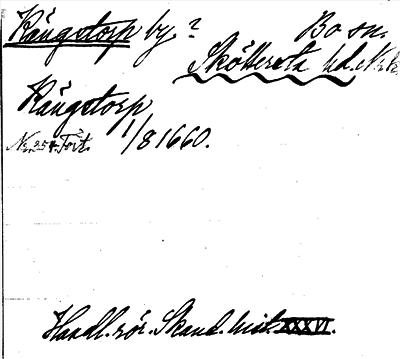 Rångstorp by? Bo sn.
Skyllersta hd. Nrk.
Rångstorp
1/8 1660.
Nr 254. Fört.
Handl. rör. Skand. hist. XXXVI.